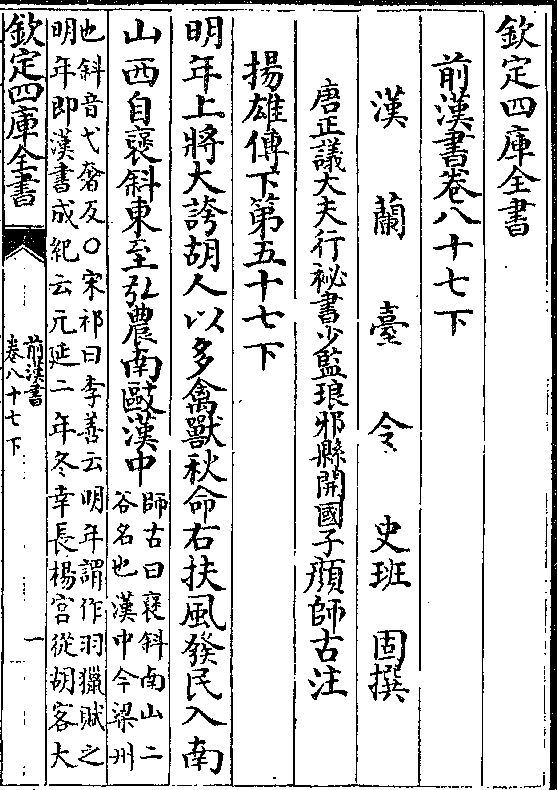 欽定四庫全書
前漢書卷八十七下
漢蘭臺令史班固撰
唐正議大夫行祕書少監琅邪縣開國子顔師古注
揚雄傳下第五十七下
明年上將大誇胡人以多禽獸秋命右扶風發民入南
山西自襃斜東至弘農南敺漢中
師古曰襃斜南山二
谷名也漢中今梁州
也斜音弋奢反○宋祁曰李善云明年謂作羽獵賦之
明年即漢書成紀云元延二年冬幸長楊宮從胡客大
欽定四庫全書
前漢書
卷八十七下
一